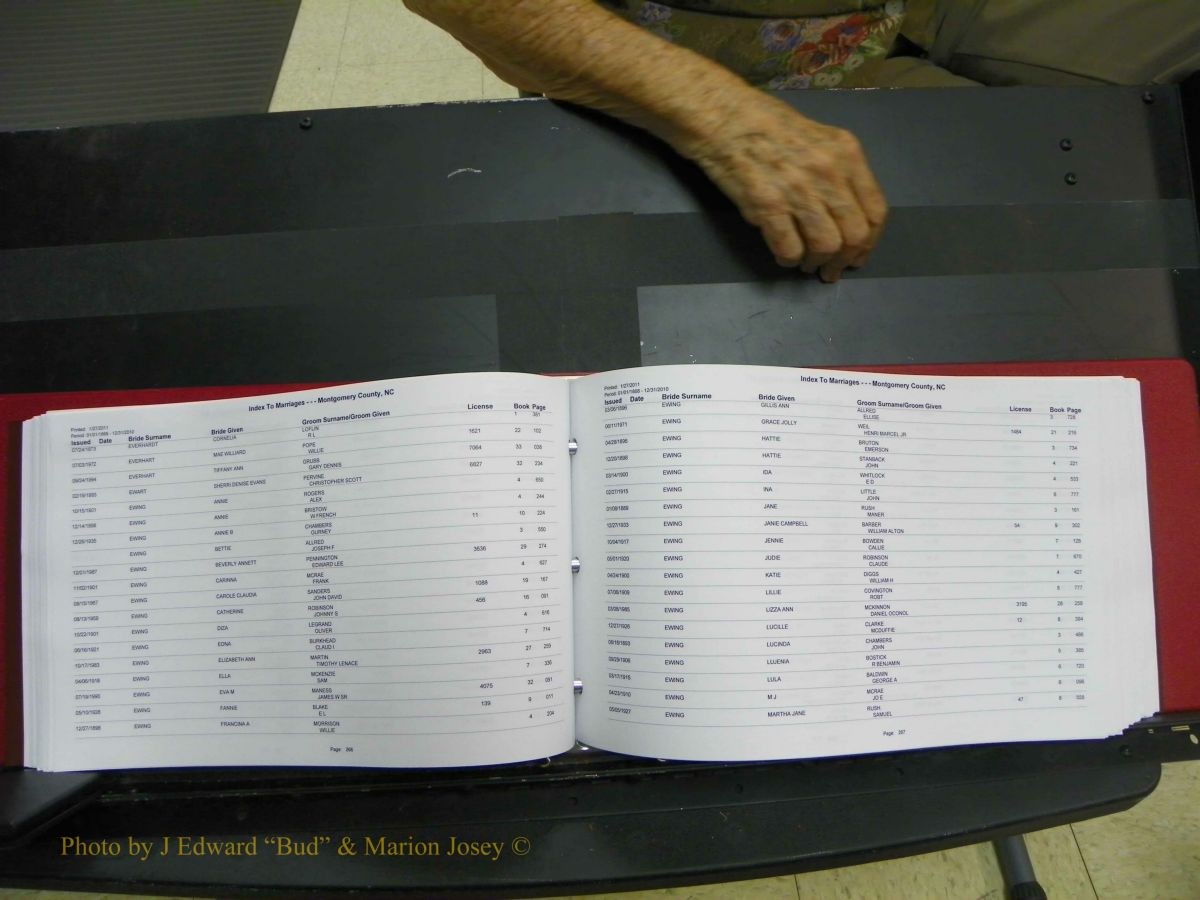 Index To Marriages - - - Montgomery County, NC
Printed: 1/27/2011
Period: 01/01/1868 - 12/31/2010
Issued Date Bride Surname Bride Given Groom Surname/Groom Given License Book Page
07/24/1873 EVERHARDT CORNELIA LOFLIN 1 381
R L
07/03/1972 EVERHART MAE WILLIARD POPE 1621 22 102
WILLIE
09/24/1994 EVERHART TIFFANY ANN GRUBB 7064 33 036
GARY DENNIS
EWART SHERRI DENISE EVANS PERVINE 6827 32 234
CHRISTOPHER SCOTT
10/15/1901 EWING ANNIE ROGERS 4 650
ALEX
12/14/1898 EWING ANNIE BRISTOW 4 244
W.FRENCH
12/28/1935 EWING ANNIE B CHAMBERS 11 10 224
GURNEY
EWING BETTIE ALLRED 3 550
JOSEPH F
12/01/1987 EWING BEVERLY ANNETT PENNINGTON 3636 29 274
EDWARD LEE
11/02/1901 EWING CARINNA MCRAE 4 627
FRANK
EWING CAROLE CLAUDIA SANDERS 1088 19 167
JOHN DAVID
08/13/1959 EWING CATHERINE ROBINSON 456 16 091
JOHNNY S
10/22/1901 EWING DIZA LEGRAND 4 616
OLIVER
06/16/1921 EWING EDNA BURKHEAD 7 714
CLAUD I
10/17/1983 EWING ELIZABETH ANN MARTIN 2963 27 259
TIMOTHY LENACE
04/06/1918 EWING ELLA MCKENZIE 7 336
SAM
07/19/1990 EWING EVA M MANESS 4075 32 091
JAMES W SR
05/10/1928 EWING FANNIE BLAKE 139 9 011
E L
12/27/1898 EWING FRANCINA A MORRISON 4 204
WILLIE
Page 266
Index To Marriages - - - Montgomery County, NC
Printed: 1/27/2011
Period: 01/01/1868 - 12/31/2010
Issued Date Bride Surname Bride Given Groom Surname/Groom Given License Book Page
03/06/1896 EWING GILLIS ANN ALLRED 3 728
ELLISE
06/11/1971 EWING GRACE JOLLY WEIL 1484 21 216
HENRI MARCEL JR
04/28/1896 EWING HATTIE BRUTON 3 734
EMERSON
12/20/1898 EWING HATTIE STANBACK 4 221
JOHN
03/14/1900 EWING IDA WHITLOCK 4 533
E D
02/27/1915 EWING INA LITTLE 6 777
JOHN
EWING JANE RUSH 3 161
MANER
12/27/1933 EWING JANIE CAMPBELL BARBER 54 9 302
WILLIAM ALTON
10/04/1917 EWING JENNIE BOWDEN 7 128
CALLIE
05/01/1920 EWING JUDIE ROBINSON 7 670
CLAUDE
04/24/1900 EWING KATIE DIGGS 4 427
WILLIAM H
07/08/1909 EWING LILLIE COVINGTON 5 777
ROBT
03/28/1985 EWING LIZZA ANN MCKINNON 3195 28 259
DANIEL OCONOL
12/27/1926 EWING LUCILLE CLARKE 12 8 304
MCDUFFIE
EWING LUCINDA CHAMBERS 3 466
JOHN
EWING LUJENIA BOSTICK 5 385
R BENJAMIN
EWING LULA BALDWIN 6 720
GEORGE A
04/23/1910 EWING M J MCRAE 6 098
JO E
05/05/1927 EWING MARTHA JANE RUSH 47 8 528
SAMUEL
Page 267
Photo by J Edward “Bud” & Marion Josey ©